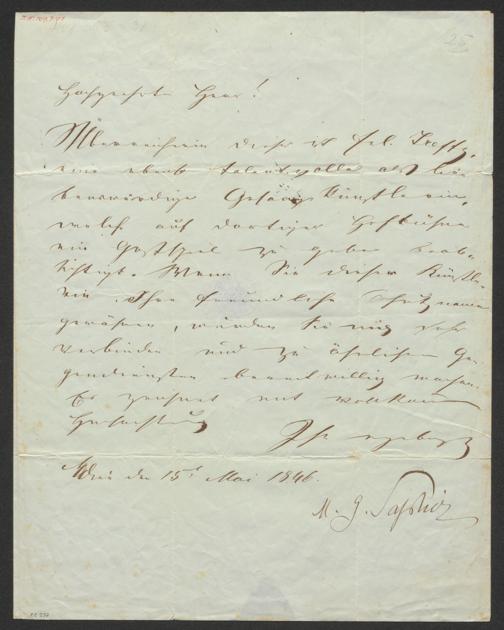 25
Hochgeehrter Herr!
Überreicherin dieses ist Frl. Treffz,
eine ebenso talentvolle als lie-
benswürdige Gesangskünstlerin,
welche auf dortiger Hofbühne
ein Gastspiel zu geben beab-
sichtigt. Wenn Sie dieser Künstle-
rin Ihre freundliche
gewähren, würden Sie mich sehr
verbinden und zu ähnlichen Ge-
gendiensten bereitwillig machen.
Es zeichnet mit vollkom
Hochachtung
Ihr ergebenster
Wien den 15t Mai 1846.
M. G. Saphir